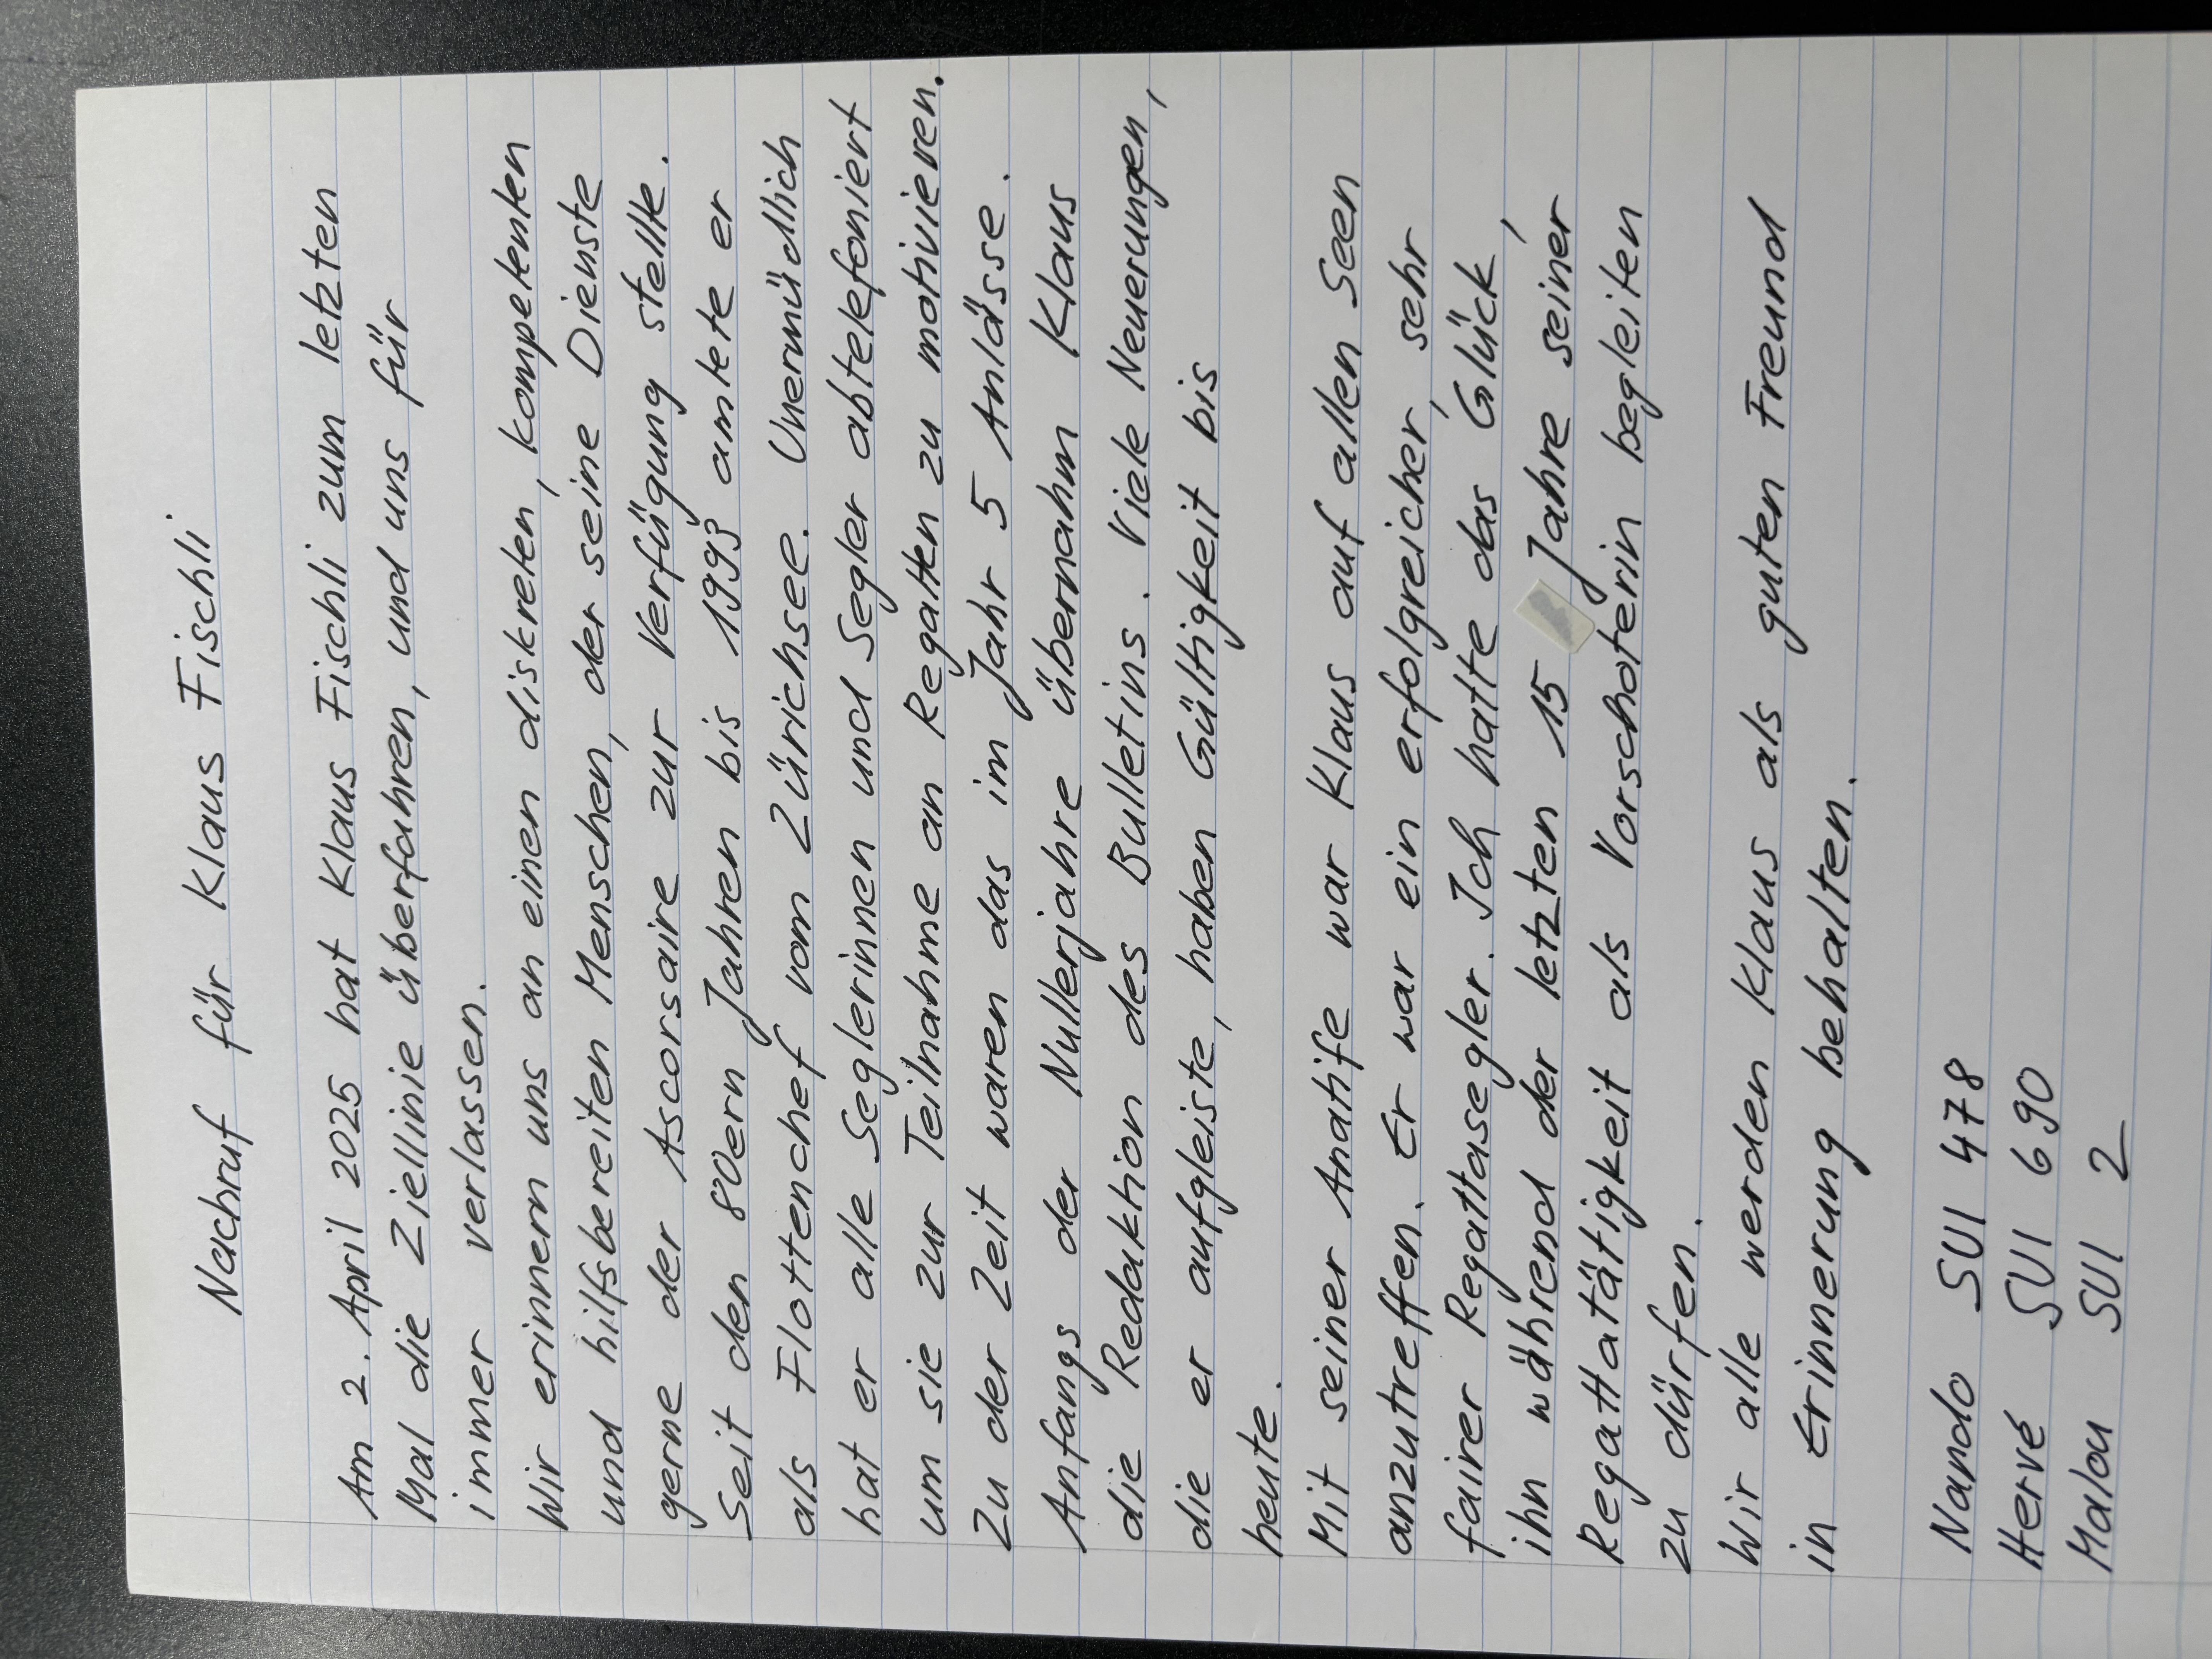 Nachruf für Klaus Fischli
Am 2. April 2025 hat Klaus Fischli zum letzten
Mal die Ziellinie überfahren, und uns für
immer verlassen.
Wir erinnern uns an einen diskreten, kompetenten
und hilfsbereiten Menschen, der seine Dienste
gerne der Ascorsaire zur Verfügung stellte.
Seit den 80ern Jahren bis 1993 amtete er
als Flottenchef vom Zürichsee. Unermüdlich
hat er alle Seglerinnen und Segler abtelefoniert
um sie zur Teilnahme an Regatten zu motivieren.
Zu der Zeit waren das im Jahr 5 Anlässe.
Anfangs der Nullerjahre übernahm Klaus
die Redaktion des Bulletins. Viele Neuerungen,
die er aufgleiste, haben Gültigkeit bis
heute.
Mit seiner Anatife war Klaus auf allen Seen
anzutreffen. Er war ein erfolgreicher, sehr
fairer Regattasegler. Ich hatte das Glück,
ihn während der letzten 15 Jahre seiner
Regattatätigkeit als Vorschoterin begleiten
zu dürfen.
Wir alle werden Klaus als guten Freund
in Erinnerung behalten.
Nando SUI 478
Hervé SUI 690
Malou SUI 2